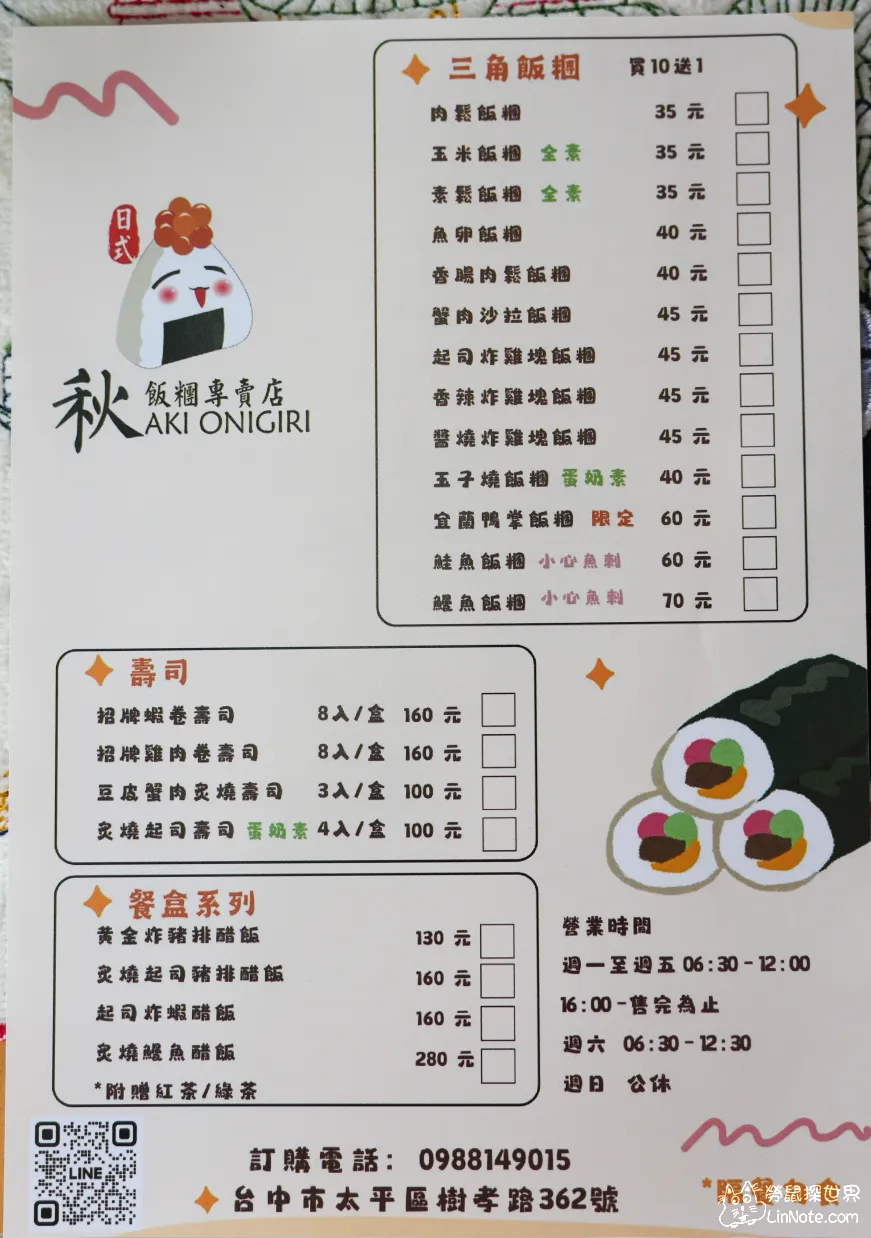 日式
秋 飯糰專賣店
AKI ONIGIRI
三角飯糰 買10送1
肉鬆飯糰 35 元
玉米飯糰 全素 35 元
素鬆飯糰 全素 35 元
魚卵飯糰 40 元
香腸肉鬆飯糰 40 元
蟹肉沙拉飯糰 45 元
起司炸雞塊飯糰 45 元
香辣炸雞塊飯糰 45 元
醬燒炸雞塊飯糰 45 元
玉子燒飯糰 蛋奶素 40 元
宜蘭鴨掌飯糰 限定 60 元
鮭魚飯糰 小心魚刺 60 元
鰻魚飯糰 小心魚刺 70 元
壽司
招牌蝦卷壽司 8入/盒 160 元
招牌雞肉卷壽司 8入/盒 160 元
豆皮蟹肉炙燒壽司 3入/盒 100 元
炙燒起司壽司 蛋奶素 4入/盒 100 元
餐盒系列
黃金炸豬排醋飯 130 元
炙燒起司豬排醋飯 160 元
起司炸蝦醋飯 160 元
炙燒鰻魚醋飯 280 元
*附贈紅茶/綠茶
營業時間
週一至週五 06:30-12:00
16:00-售完為止
週六 06:30-12:30
週日 公休
LINE
訂購電話: 0988149015
台中市太平區樹孝路362號
勞鼠探世界
LinNote.com